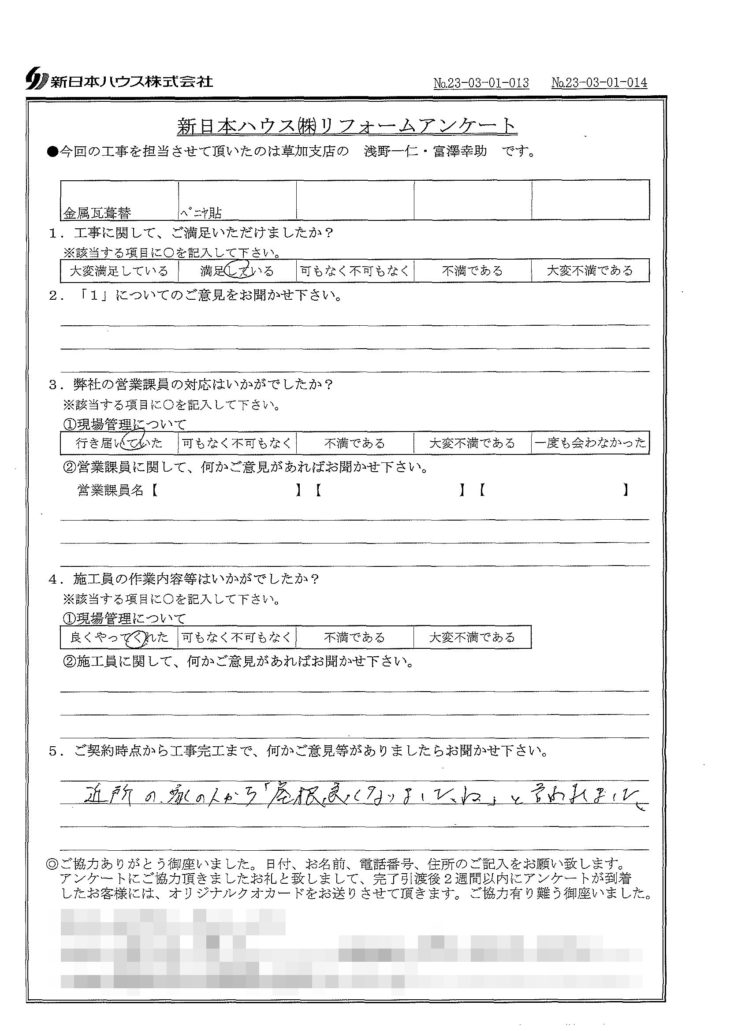 新日本ハウス株式会社
№23-03-01-013 №23-03-01-014
新日本ハウス㈱リフォームアンケート
●今回の工事を担当させて頂いたのは草加支店の 浅野一仁・富澤幸助 です。
金属瓦葺替 ﾍﾞﾆﾔ貼
1．工事に関して、ご満足いただけましたか？
※該当する項目に○を記入して下さい。
大変満足している 満足している 可もなく不可もなく 不満である 大変不満である
2．「1」についてのご意見をお聞かせ下さい。
3．弊社の営業課員の対応はいかがでしたか？
※該当する項目に○を記入して下さい。
①現場管理について
行き届いていた 可もなく不可もなく 不満である 大変不満である 一度も会わなかった
②営業課員に関して、何かご意見があればお聞かせ下さい。
営業課員名【 】【 】【 】
4．施工員の作業内容等はいかがでしたか？
※該当する項目に○を記入して下さい。
①現場管理について
良くやってくれた 可もなく不可もなく 不満である 大変不満である
②施工員に関して、何かご意見があればお聞かせ下さい。
5．ご契約時点から工事完工まで、何かご意見等がありましたらお聞かせ下さい。
近所の家の人から「屋根良くなりましたね」と言われました
◎ご協力ありがとう御座いました。日付、お名前、電話番号、住所のご記入をお願い致します。
アンケートにご協力頂きましたお礼と致しまして、完了引渡後２週間以内にアンケートが到着
したお客様には、オリジナルクオカードをお送りさせて頂きます。ご協力有り難う御座いました。